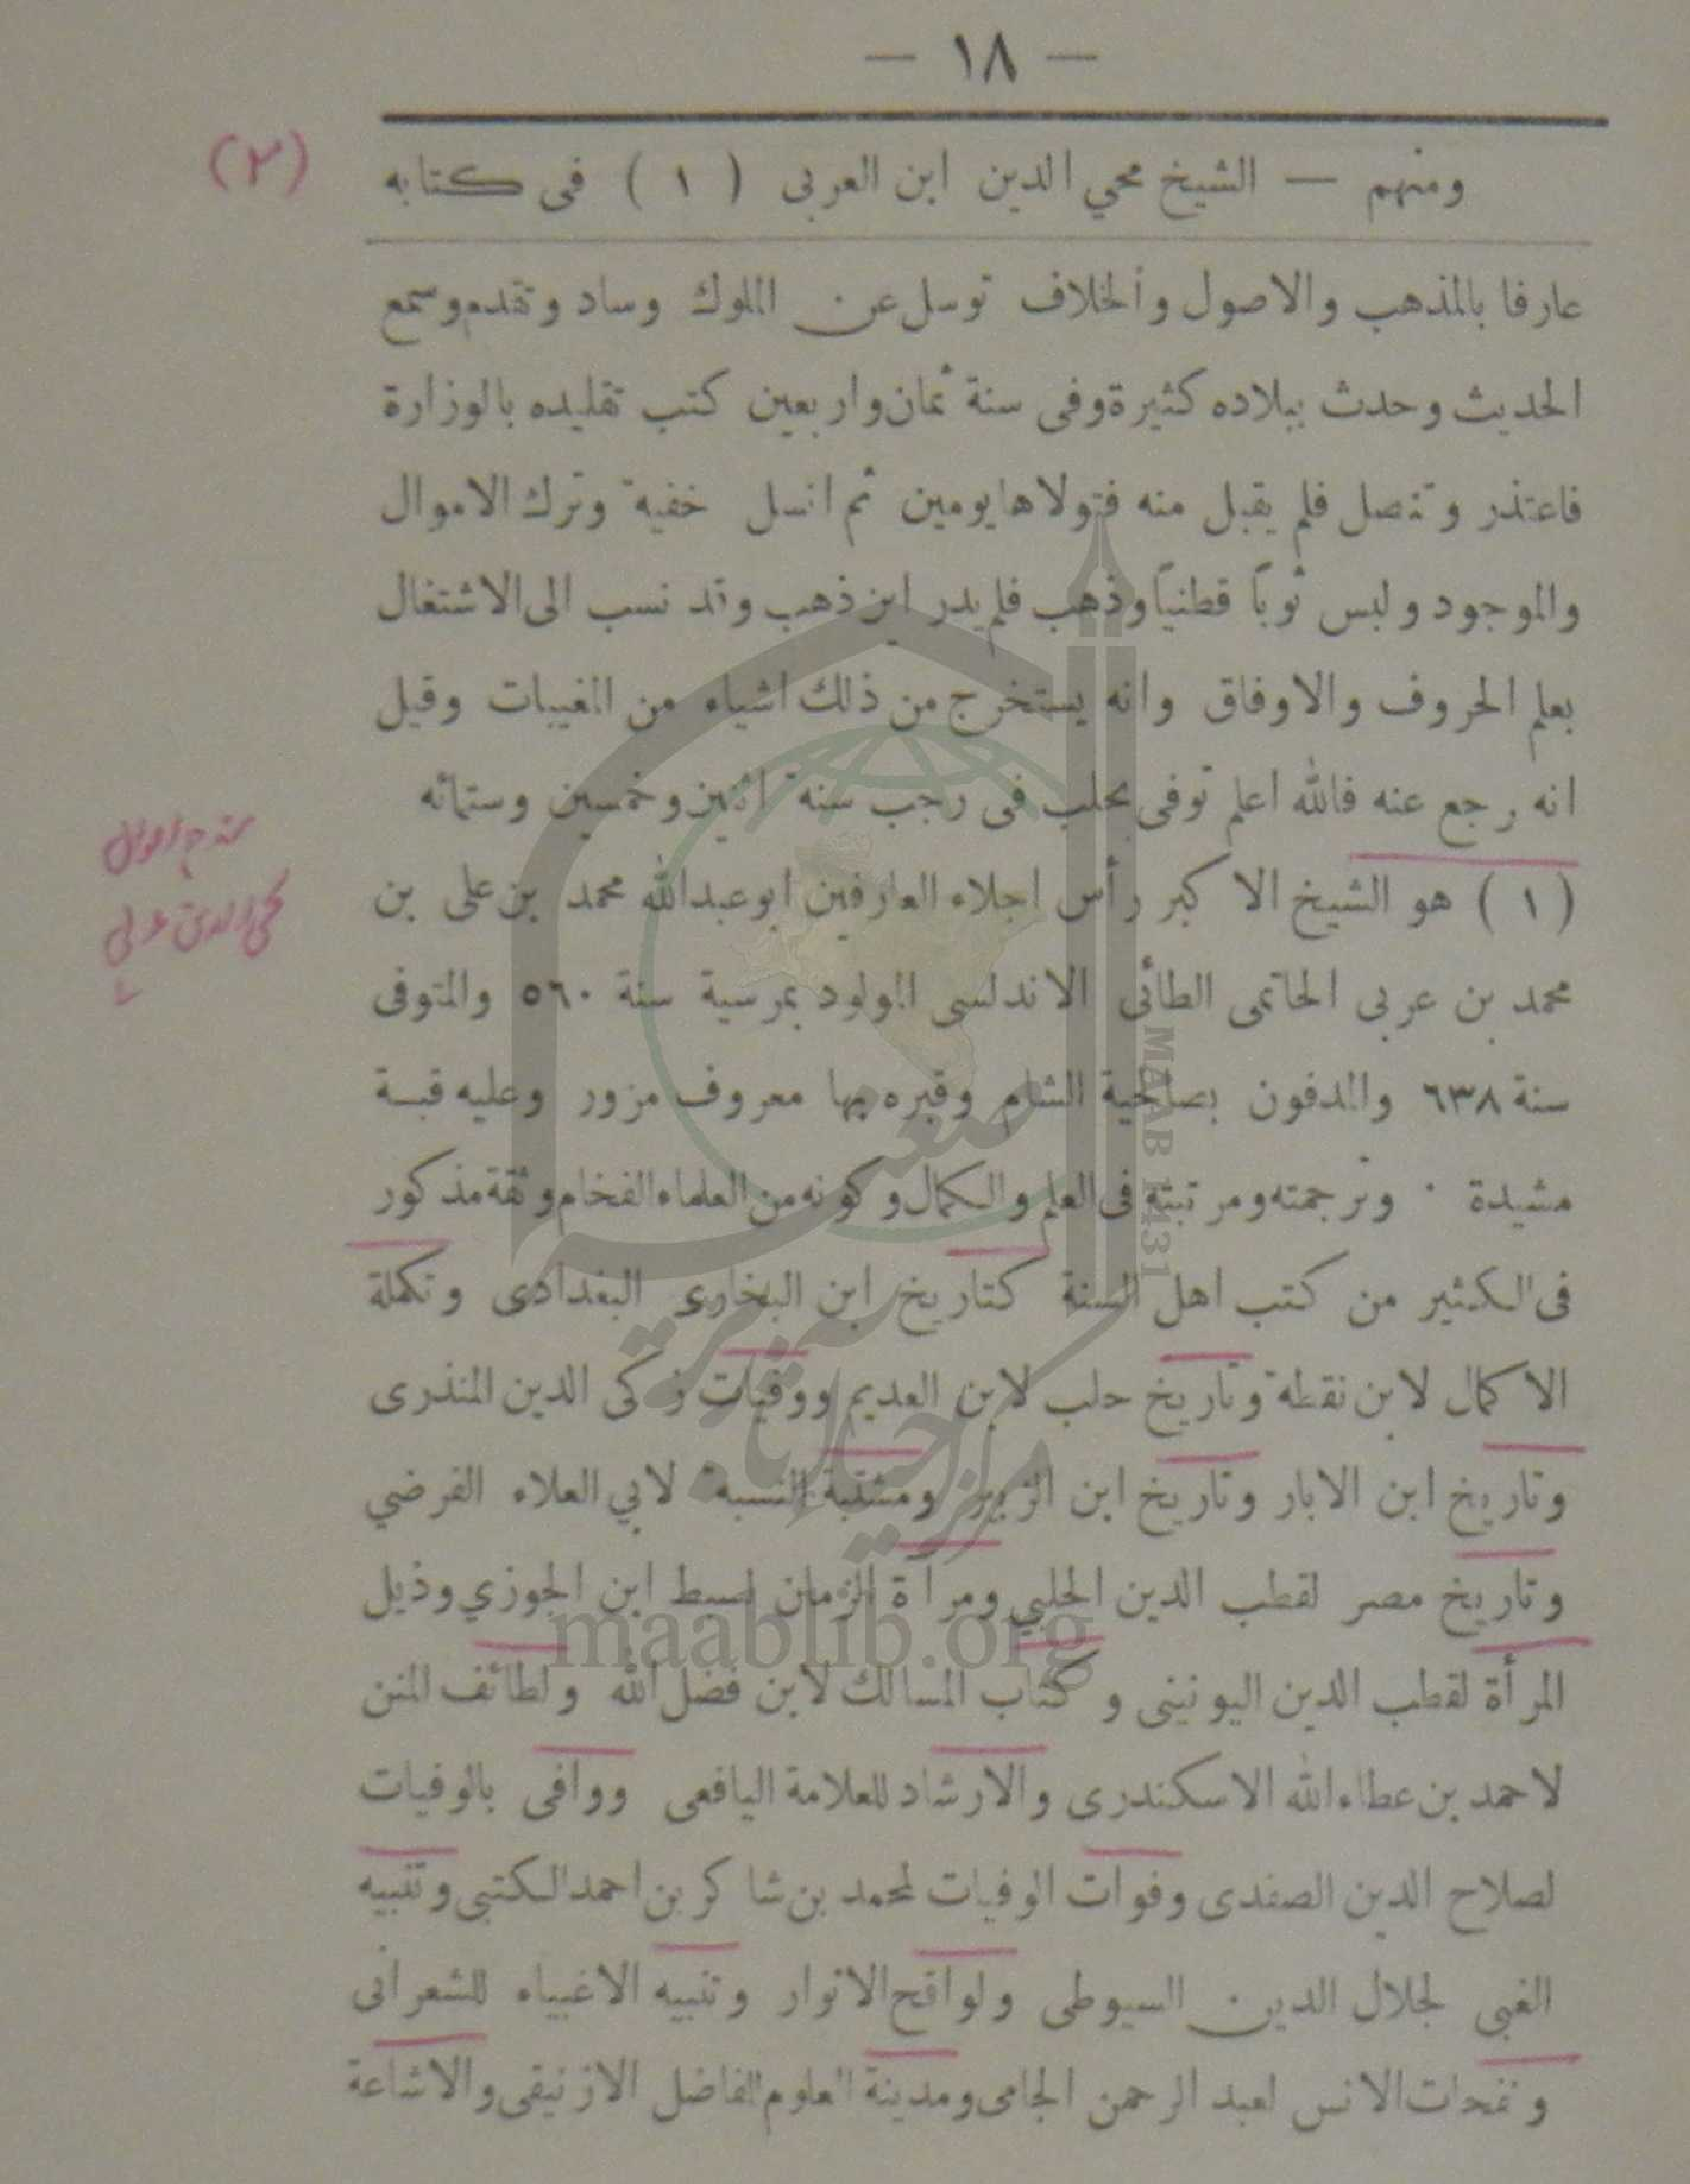 — ١٨ —
(٢)
ومنهم — الشيخ محي الدين ابن العربى ( ١ ) فى كتابه
عارفا بالمذهب والاصول وألخلاف توسل عن الملوك وساد وتقدم وسمع
الحديث وحدث ببلاده كثيرة وفى سنة ثمان واربعين كتب تقليده بالوزارة
فاعتذر وتنصل فلم يقبل منه فتولاها يومين ثم انسل خفية وترك الاموال
والموجود ولبس ثوباً قطنياً وذهب فلم يدر اين ذهب وقد نسب الى الاشتغال
بعلم الحروف والاوفاق وانه يستخرج من ذلك اشياء من المغيبات وقيل
انه رجع عنه فالله اعلم توفى بحلب فى رجب سنة اثنين وخمسين وستمائه
( ١ ) هو الشيخ الاكبر رأس اجلاء العارفين ابو عبدالله محمد بن على بن
محمد بن عربى الحاتمى الطائى الاندلسى المولود بمرسية سنة ٥٦٠ والمتوفى
سنة ٦٣٨ والمدفون بصالحية الشام وقبره بها معروف مزور وعليه قبة
مشيدة . وترجمته ومرتبته فى العلم والكمال وكونه من العلماء الفخام وثقة مذكور
فى الكثير من كتب اهل السنة كتاريخ ابن البخارى البغدادى وتكملة
الاكمال لابن نقطة وتاريخ حلب لابن العديم ووفيات زكى الدين المنذرى
وتاريخ ابن الابار وتاريخ ابن الزبير ومشتبة النسبة لابي العلاء الفرضي
وتاريخ مصر لقطب الدين الحلبي ومرآة الزمان لسبط ابن الجوزي وذيل
المرأة لقطب الدين اليونينى وكتاب المسالك لابن فضل الله ولطائف المنن
لاحمد بن عطاءالله الاسكندرى والارشاد للعلامة اليافعى ووافى بالوفيات
لصلاح الدين الصفدى وفوات الوفيات لمحمد بن شاكر بن احمد الكتبى وتنبيه
الغبى لجلال الدين السيوطى ولواقح الانوار وتنبيه الاغبياء للشعرانى
ونفحات الانس لعبد الرحمن الجامى ومدينة العلوم للفاضل الازنيقى والاشاعة
محى الدين عربى
MAAB 1431
maablib.org